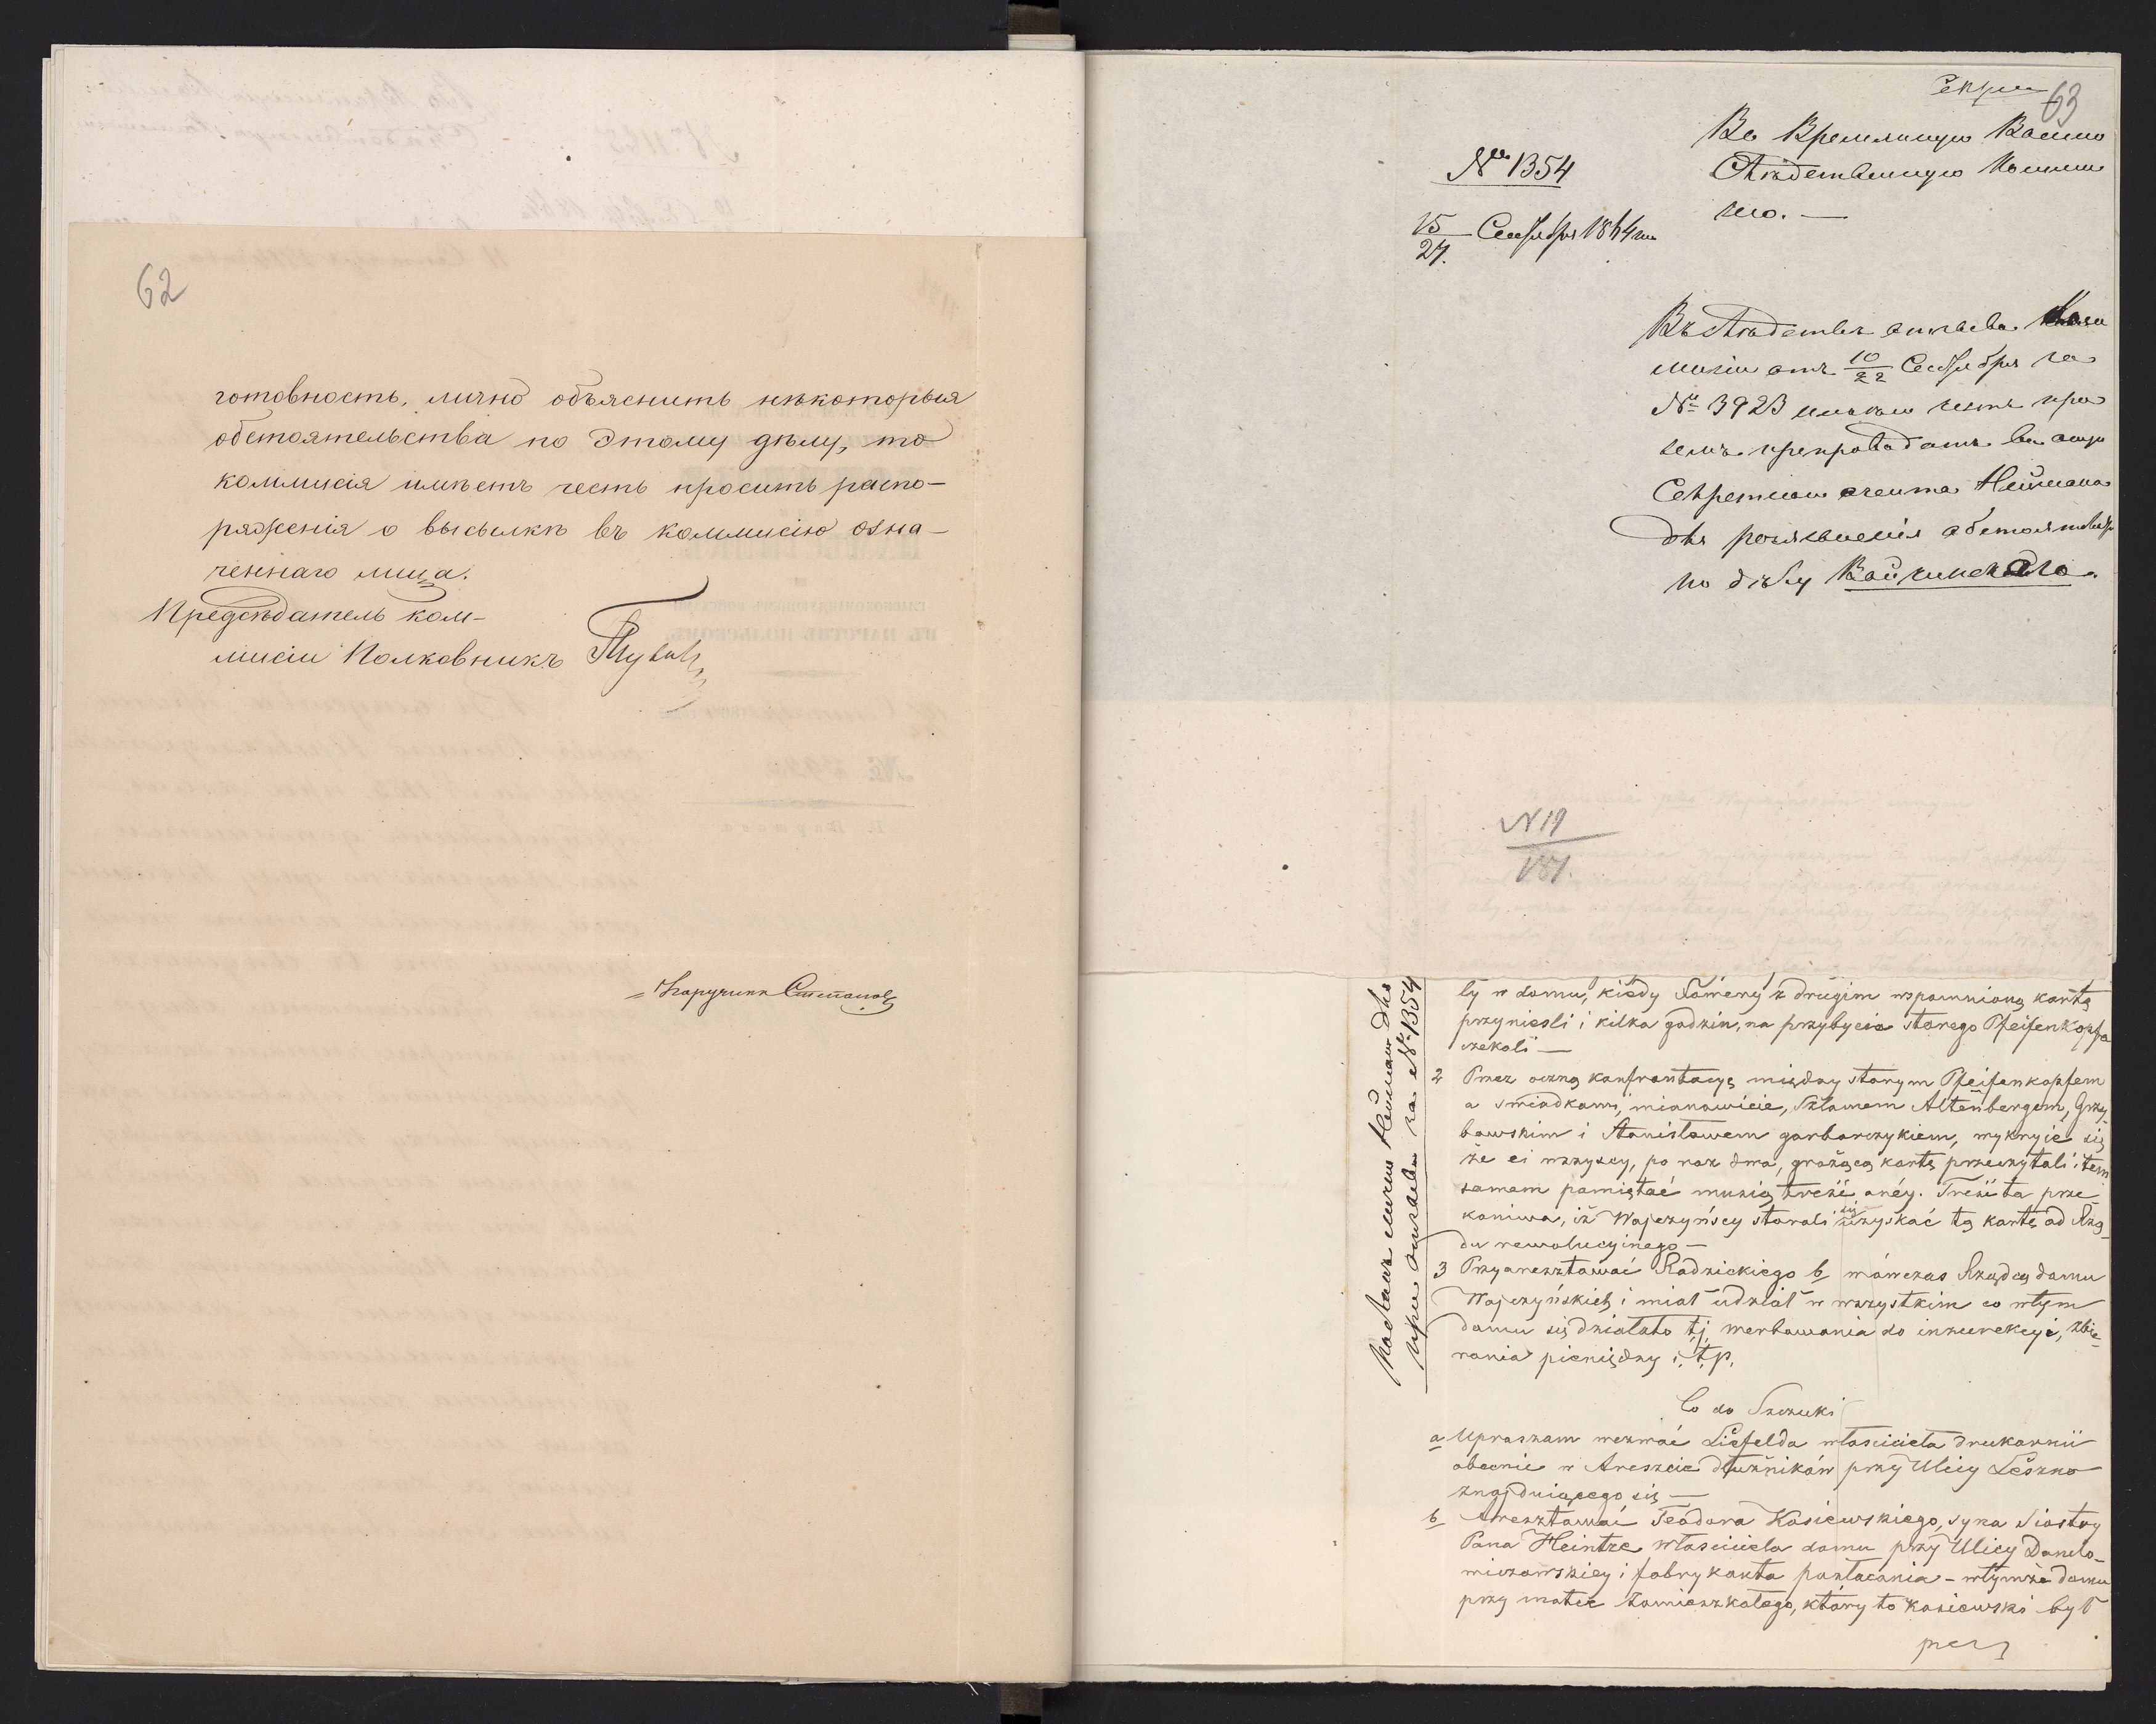 62
готовность, лично объяснить нѣкоторыя
обстоятельства по этому дѣлу, то
коммисія имѣетъ честь просить распо-
ряженія о высылкѣ въ коммисію озна-
ченнаго лица.
Предсѣдатель ком-
мисіи Полковникъ
Поручикъ Степановъ
63
Во Временную Военно
Слѣдственную Коммис
сію. —
№ 1354
15/27. Сентября 1864 г.
Въ слѣдствіе отзыва
мисіи отъ 10/22 Сентября за
№ 3923 имѣю честь при
семъ препроводить
Секретнаго агента Неймана
для разъясненія обстоятельствъ
по дѣлу Вайчинскаго.
N 19
151.
при за № 1354
ly w domu, kiedy Ławery z drugim wspomnioną kartę
przynieśli i kilka godzin, na przybycie starego Pfeifenkopfa
czekali —
2 Przez oczną konfrontacyę między starym Pfeifenkopfem
a świadkami, mianowicie, Szlamem Altenbergem, Grzy-
bowskim i Stanisławem garbarczykiem, wykryje się
że ci wszyscy, po raz dwa, grożącą kartę przeczytali i tem
samem pamiętać muszą treść onéy. Treść ta prze-
konywa, iż Wojczyńscy starali się uzyskać tę kartę od Rzą-
du rewolucyinego —
3 Przyaresztować Radzickiego b wówczas Rządcę domu
Wojczyńskich i miał udział w wszystkim co wtym
domu się działało tj. werbowania do inzurekcyi, zbie-
rania pieniędzy i. t.p.
Co do Szczuki
a Upraszam wezwać Liefelda właściciela drukarnii
obecnie w Areszcie dłużników przy Ulicy Leszno
znajduiącego się —
b Aresztować Teodora Kosiewskiego, syna Siostry
Pana Heintze właściciela domu przy Ulicy Daniło-
wiczowskiey i fabrykanta pozłacania - wtymże domu
przy matce zamieszkałego, który to Kosiewski był